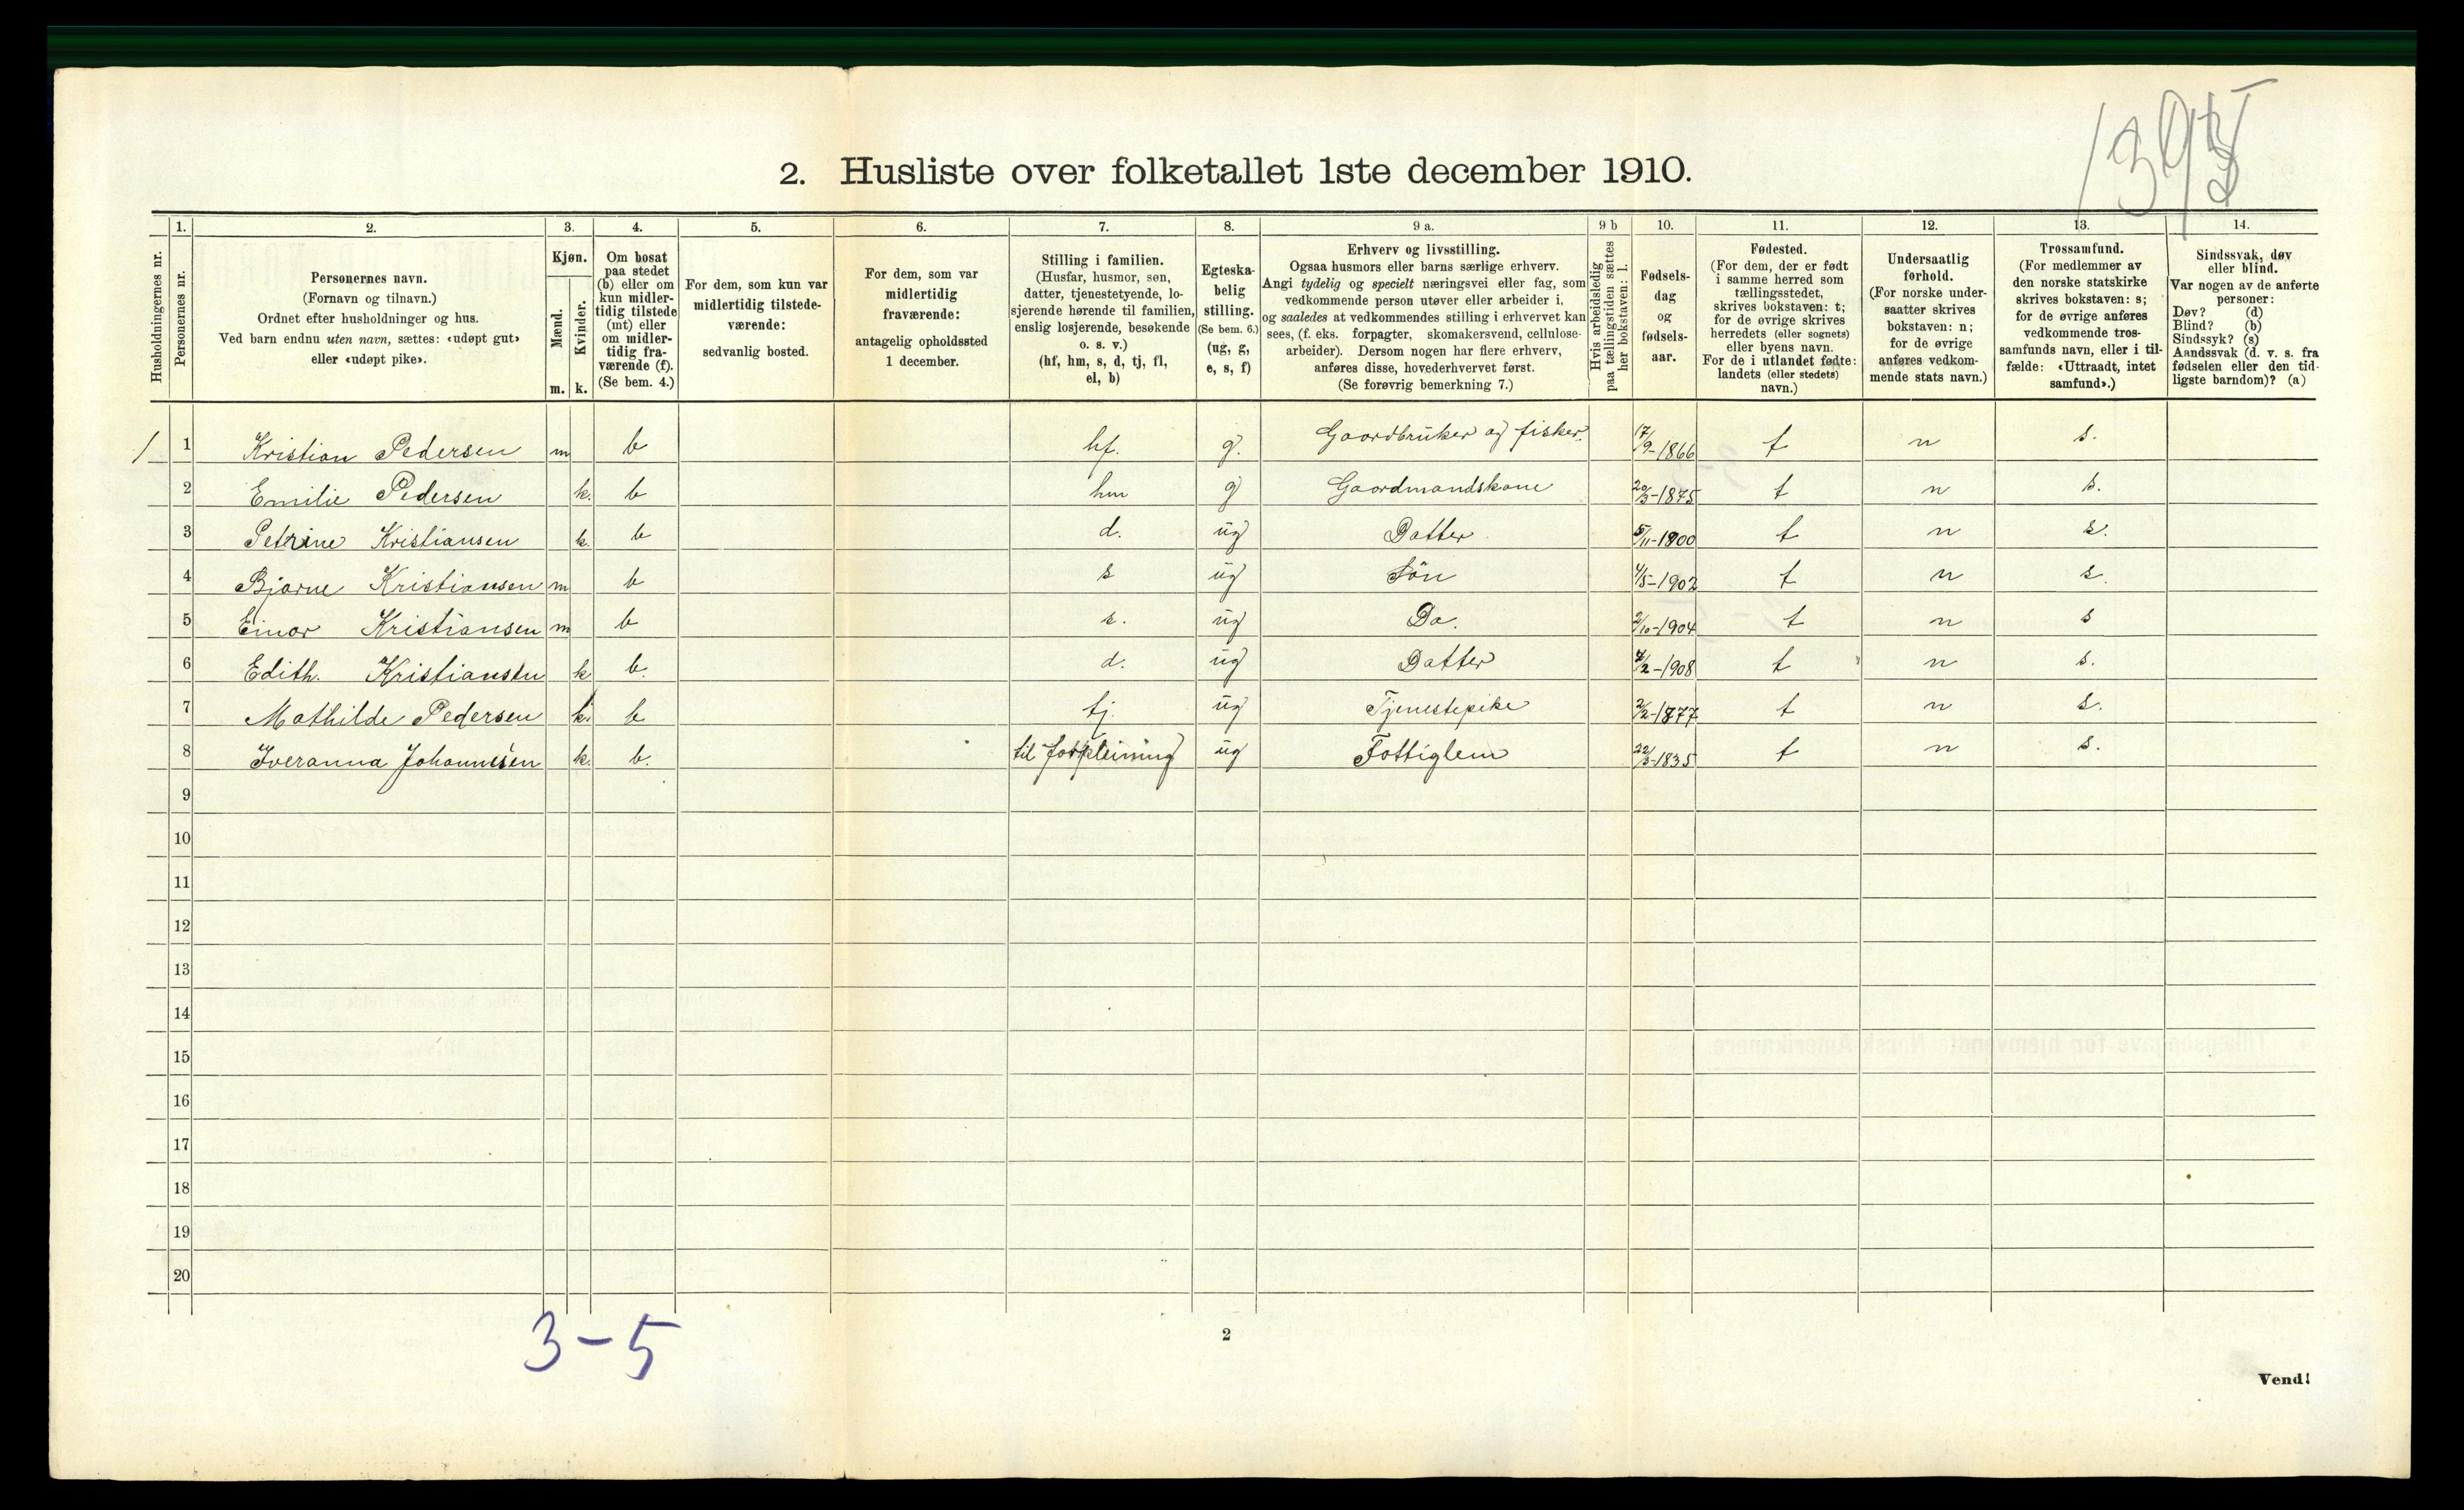 2. Husliste over folketallet 1ste december 1910.
Husholdningernes nr.
1.
Personernes nr.
2.
Personernes navn.
(Fornavn og tilnavn.)
Ordnet efter husholdninger og hus.
Ved barn endnu uten navn, sættes: «udøpt gut»
eller «udøpt pike».
3.
Kjøn.
Mænd.
m.
Kvinder.
k.
4.
Om bosat
paa stedet
(b) eller om
kun midler-
tidig tilstede
(mt) eller
om midler-
tidig fra-
værende (f).
(Se bem. 4.)
5.
For dem, som kun var
midlertidig tilstede-
værende:
sedvanlig bosted.
6.
For dem, som var
midlertidig
fraværende:
antagelig opholdssted
1 december.
7.
Stilling i familien.
(Husfar, husmor, søn,
datter, tjenestetyende, lo-
sjerende hørende til familien,
enslig losjerende, besøkende
o. s. v.)
(hf, hm, s, d, tj, fl,
el, b)
8.
Egteska-
belig
stilling.
(Se bem. 6.)
(ug, g,
e, s, f)
9 a.
Erhverv og livsstilling.
Ogsaa husmors eller barns særlige erhverv.
Angi tydelig og specielt næringsvei eller fag, som
vedkommende person utøver eller arbeider i,
og saaledes at vedkommendes stilling i erhvervet kan
sees, (f. eks. forpagter, skomakersvend, cellulose-
arbeider). Dersom nogen har flere erhverv,
anføres disse, hovederhvervet først.
(Se forøvrig bemerkning 7.)
9 b
Hvis arbeidsledig
paa tællingstiden sættes
her bokstaven: l.
10.
Fødsels-
dag
og
fødsels-
aar.
11.
Fødested.
(For dem, der er født
i samme herred som
tællingsstedet,
skrives bokstaven: t;
for de øvrige skrives
herredets (eller sognets)
eller byens navn.
For de i utlandet fødte:
landets (eller stedets)
navn.)
12.
Undersaatlig
forhold.
(For norske under-
saatter skrives
bokstaven: n;
for de øvrige
anføres vedkom-
mende stats navn.)
13.
Trossamfund.
(For medlemmer av
den norske statskirke
skrives bokstaven: s;
for de øvrige anføres
vedkommende tros-
samfunds navn, eller i til-
fælde: «Uttraadt, intet
samfund».)
14.
Sindssvak, døv
eller blind.
Var nogen av de anførte
personer:
Døv? (d)
Blind? (b)
Sindssyk? (s)
Aandssvak (d. v. s. fra
fødselen eller den tid-
ligste barndom)? (a)
1 1 Kristian Pedersen m b hf. g. Gaardbruker og fisker. 17/9-1866 t n s.
2 Emilie Pedersen k. b hm g Gaardmandskone 20/3-1875 t n s.
3 Petrine Kristiansen k. b d. ug Datter 5/11-1900 t n s.
4 Bjarne Kristiansen m b s ug Sön 4/5-1902 t n s.
5 Einar Kristiansen m b s. ug Do. 2/10-1904 t n s
6 Edith. Kristiansen k b. d. ug Datter 4/2-1908 t n s.
7 Mathilde Pedersen k. b tj. ug Tjenestepike 2/2-1877 t n s.
8 Iveranna Johannesen k. b. til forpleining ug Fattiglem 22/3-1835 t n s.
9
10
11
12
13
14
15
16
17
18
19
20
3-5
2
Vend!